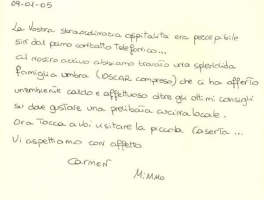 09-01-05
La Vostra straordinaria ospitalità era percepibile
sin dal primo contatto telefonico...
al nostro arrivo abbiamo trovato una splendida
famiglia umbra (OSCAR compreso) che ci ha offerto
un ambiente caldo e affettuoso oltre gli ottimi consigli
su dove gustare una prelibata cucina locale.
Ora tocca a voi visitare la piccola Caserta...
Vi aspettiamo con affetto
Carmen
Mimmo